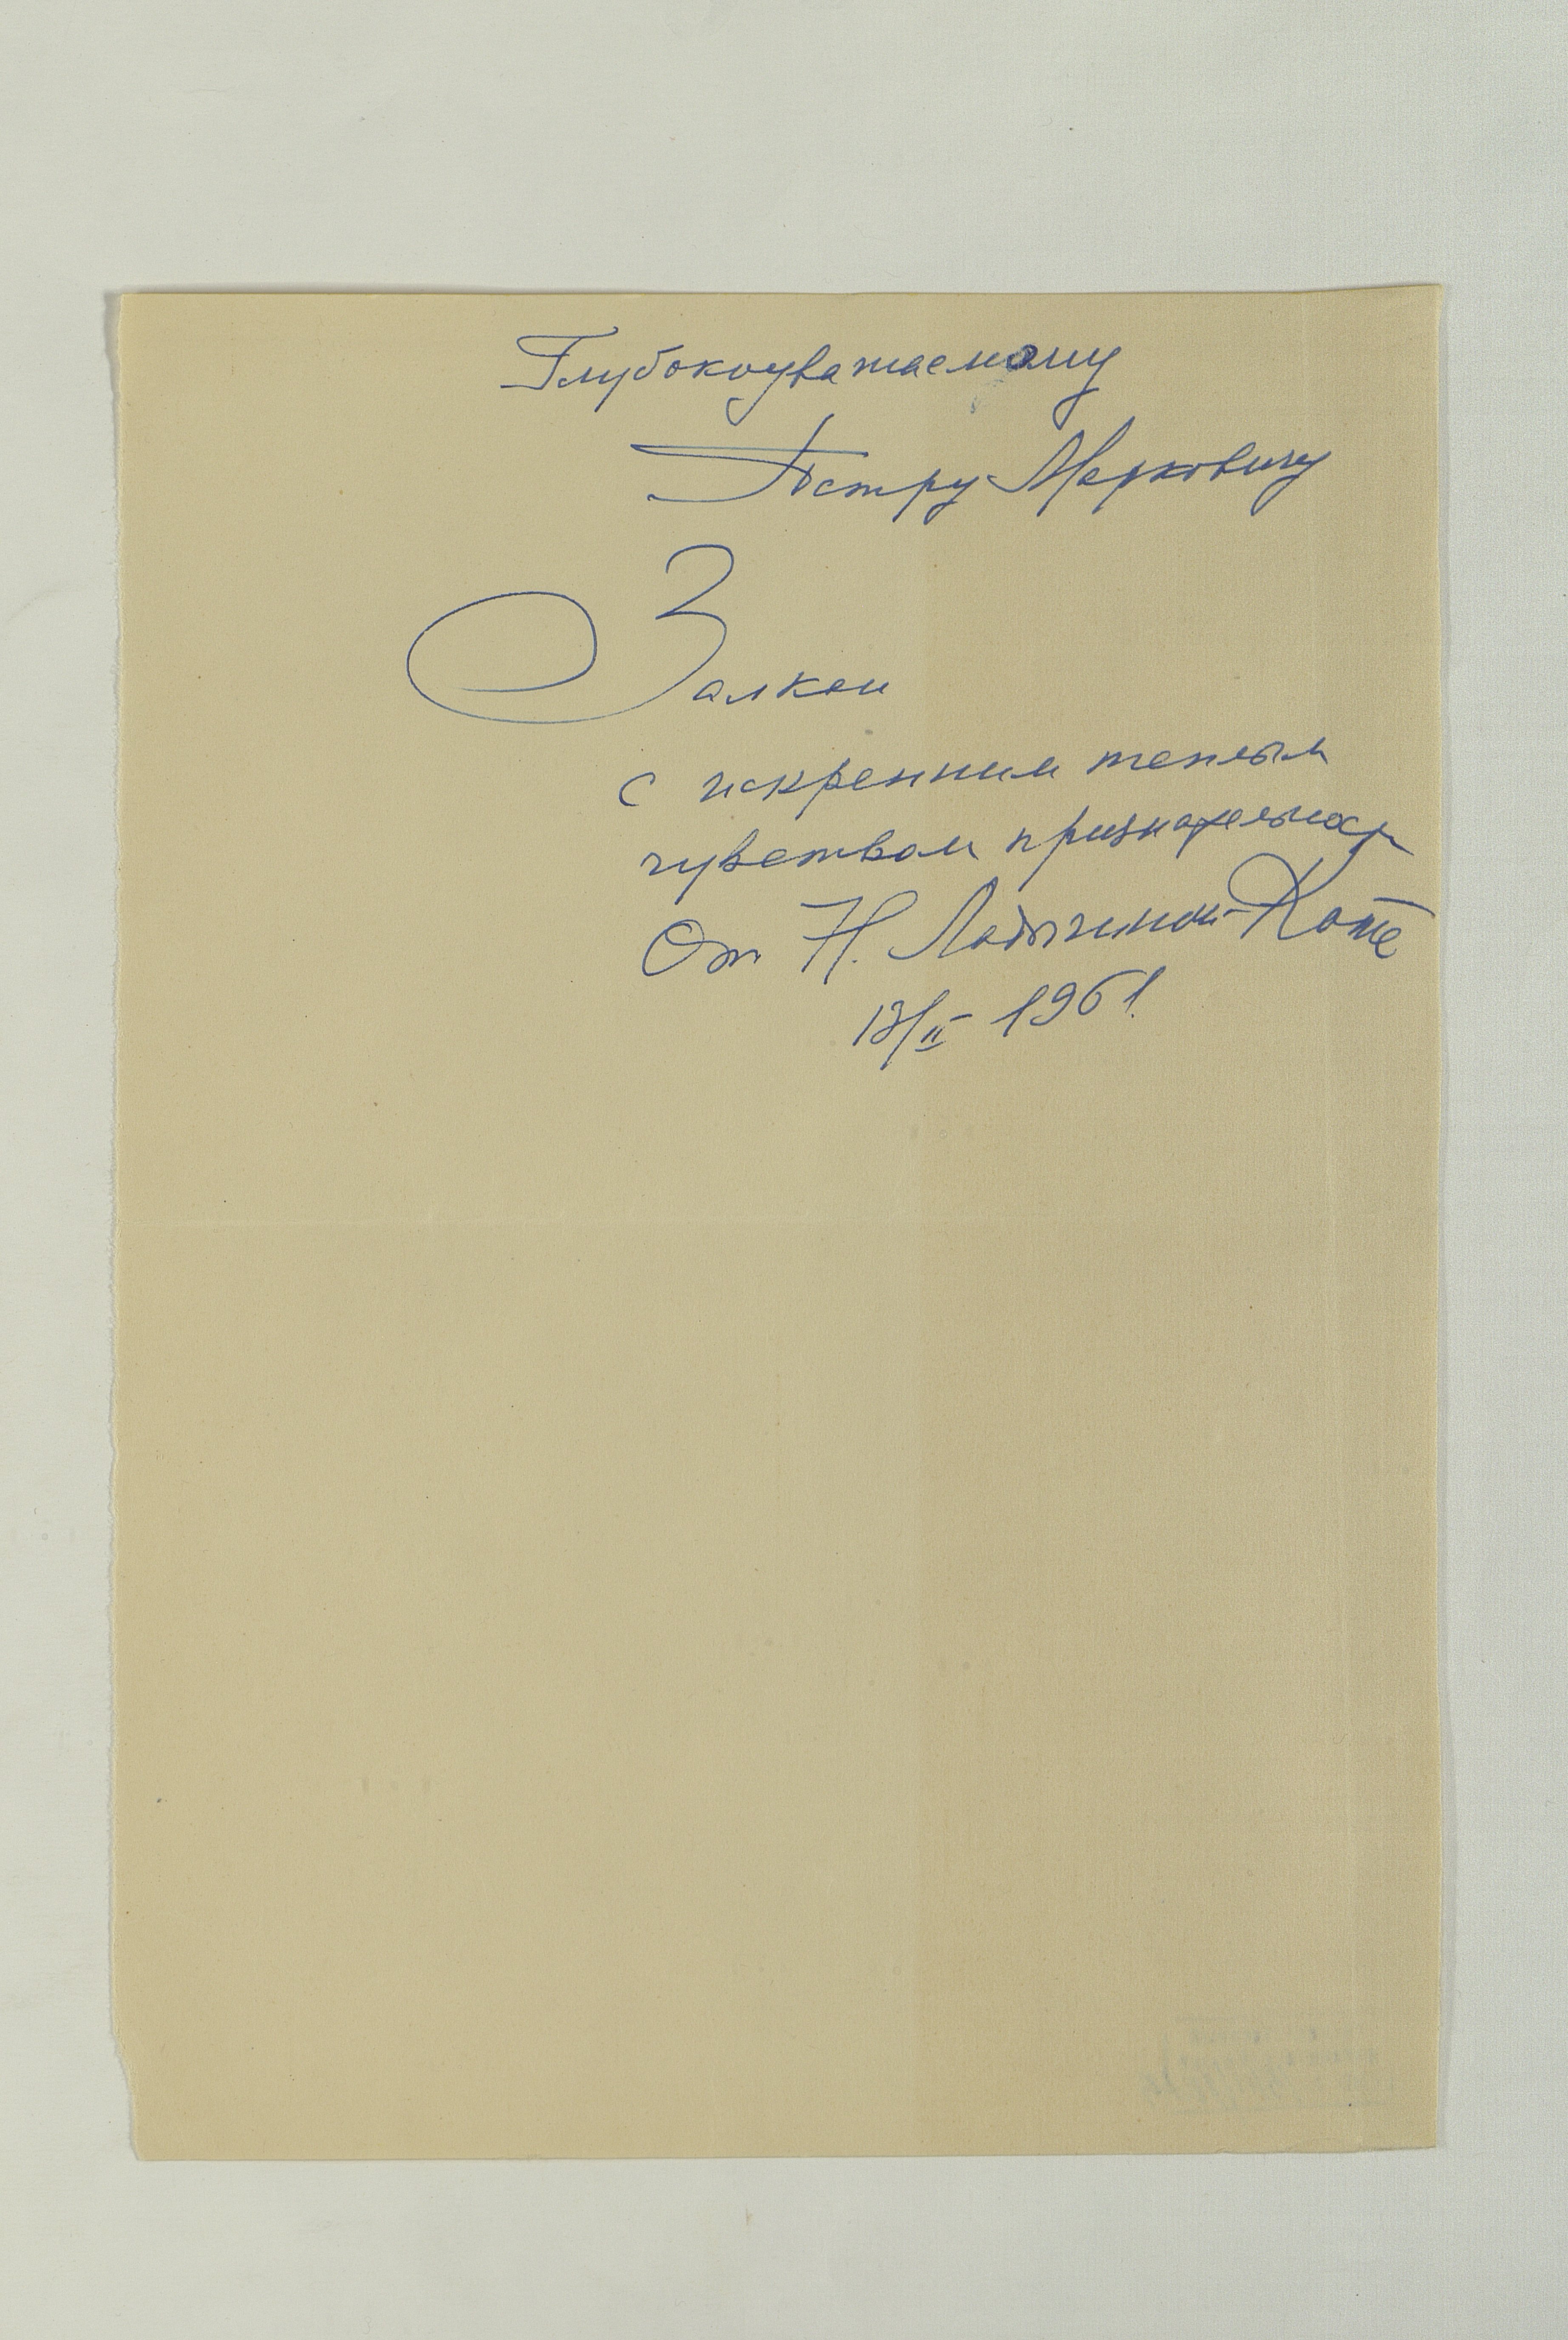 Глубокоуважаемому
Петру Марковичу
Залкан
с искренним теплым
чувством признательност
От Н. Ладыгиной-Котс
13/II 1961.